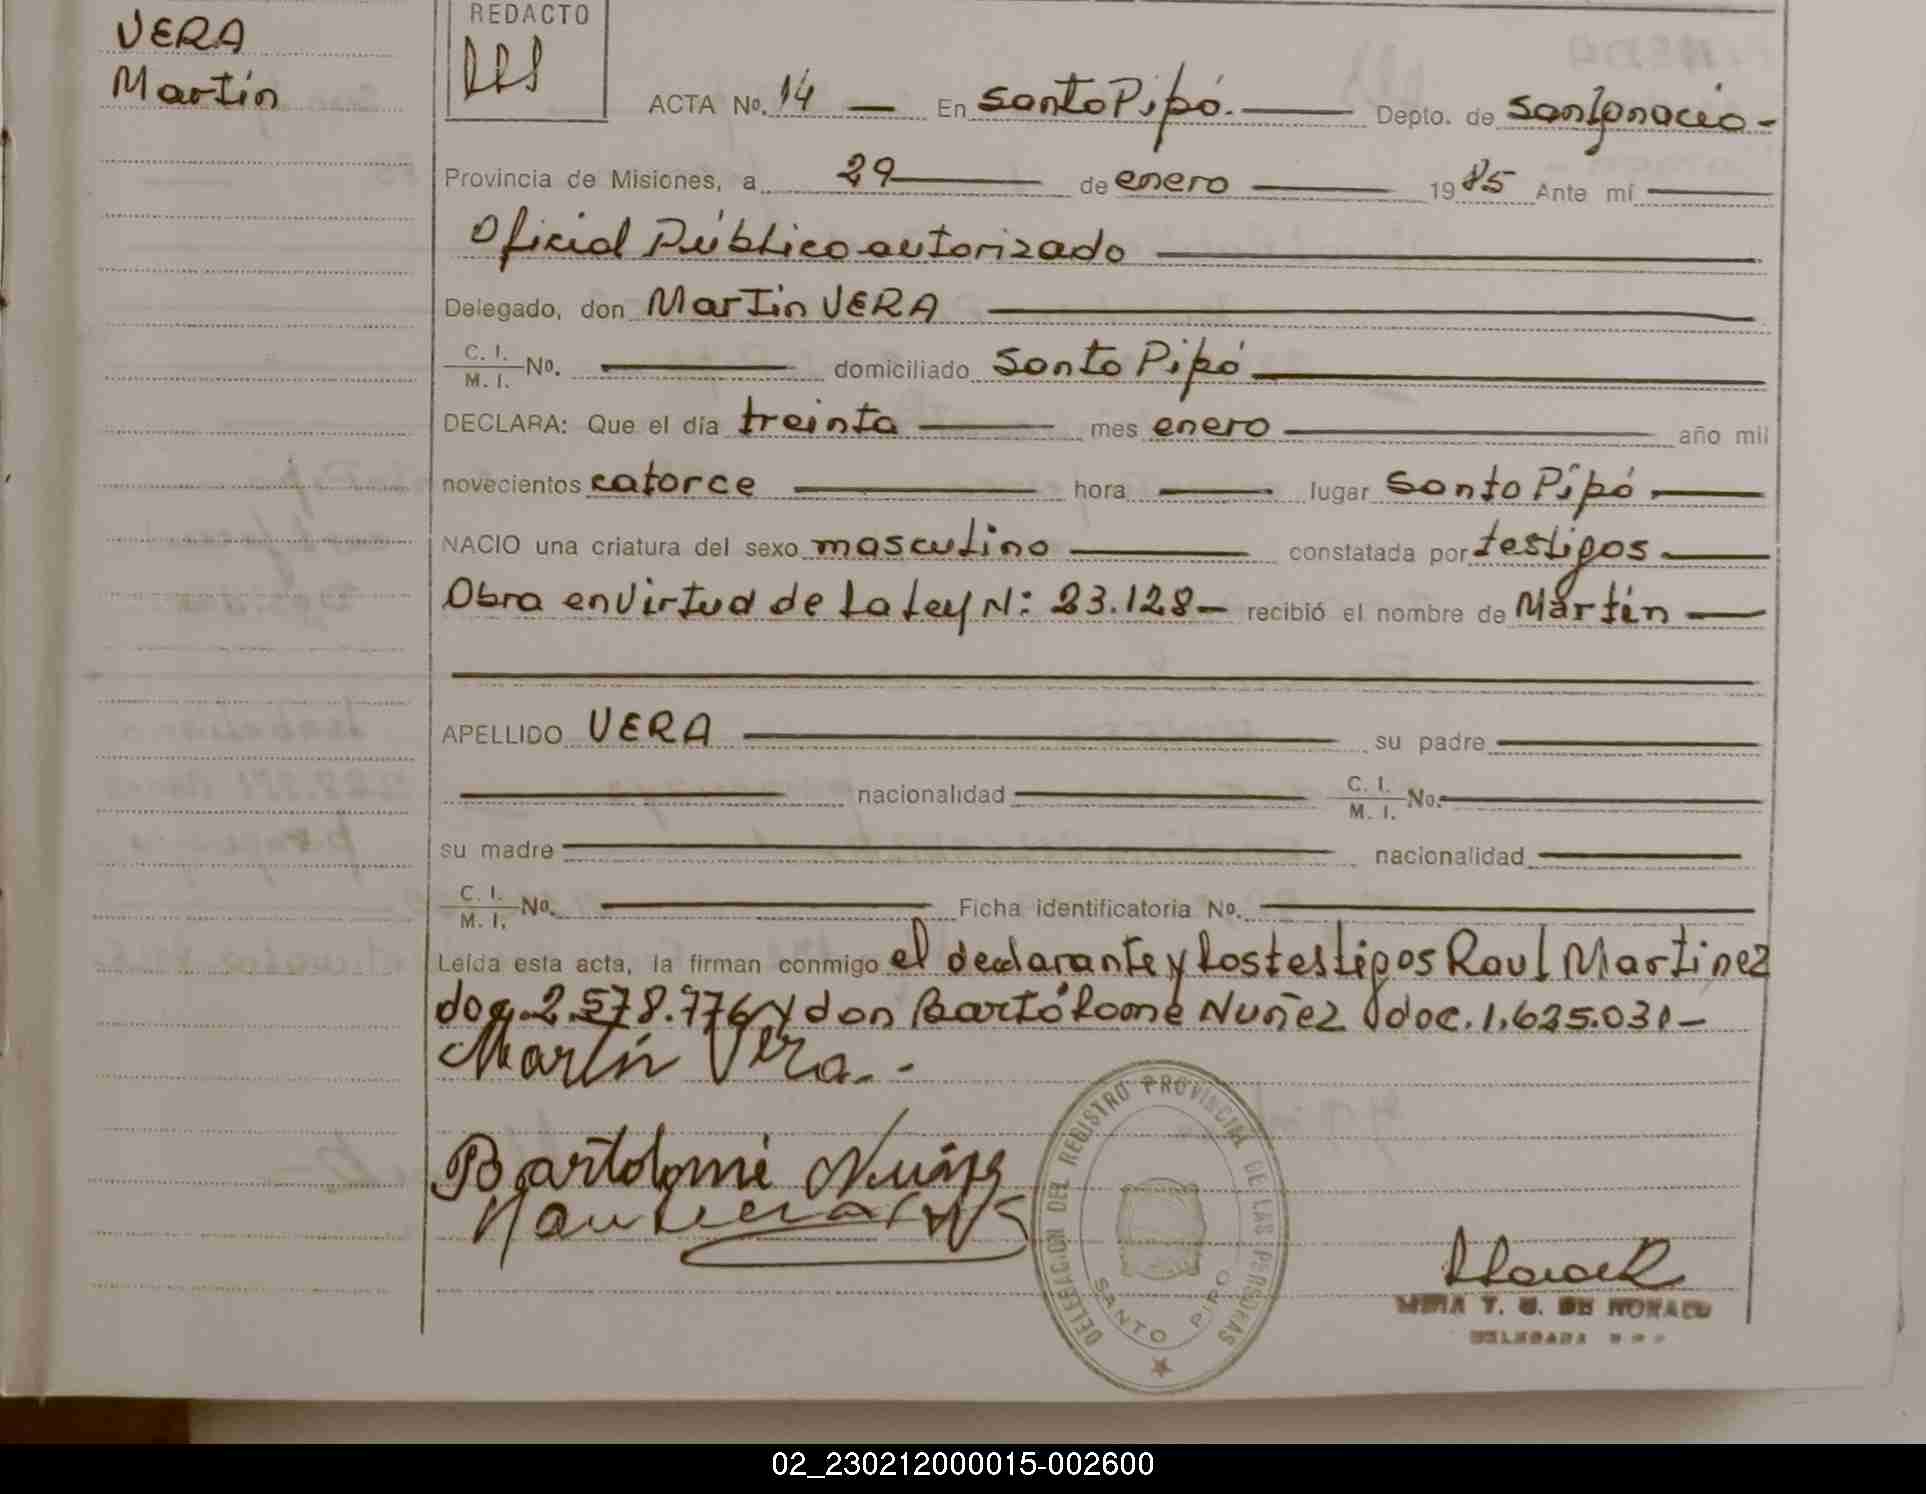 VERA
Martín
REDACTO
ACTA No. 14 — En Santo Pipó. — Depto. de San Ignacio -
Provincia de Misiones, a 29 — de enero — 1985 Ante mí —
Oficial Público autorizado —
Delegado, don Martin VERA —
C. I. / M. I. No. — domiciliado Santo Pipó —
DECLARA: Que el día treinta — mes enero — año mil
novecientos catorce — hora — lugar Santo Pipó —
NACIO una criatura del sexo masculino — constatada por testigos —
Obra en Virtud de La Ley N: 23.128 — recibió el nombre de Martín —
APELLIDO VERA — su padre —
— nacionalidad — C. I. / M. I. No. —
su madre — nacionalidad —
C. I. / M. I. No. — Ficha identificatoria No. —
Leída esta acta, la firman conmigo el declarante y los testigos Raul Martinez
doc. 2.578.776 y don Bartólome Nuñez doc. 1.625.031 —
Martín Vera. -
Bartolomé Nuñez
DELEGACION DEL REGISTRO PROVINCIAL DE LAS PERSONAS
SANTO PIPO
T. G. DE
DELEGADA
02_230212000015-002600